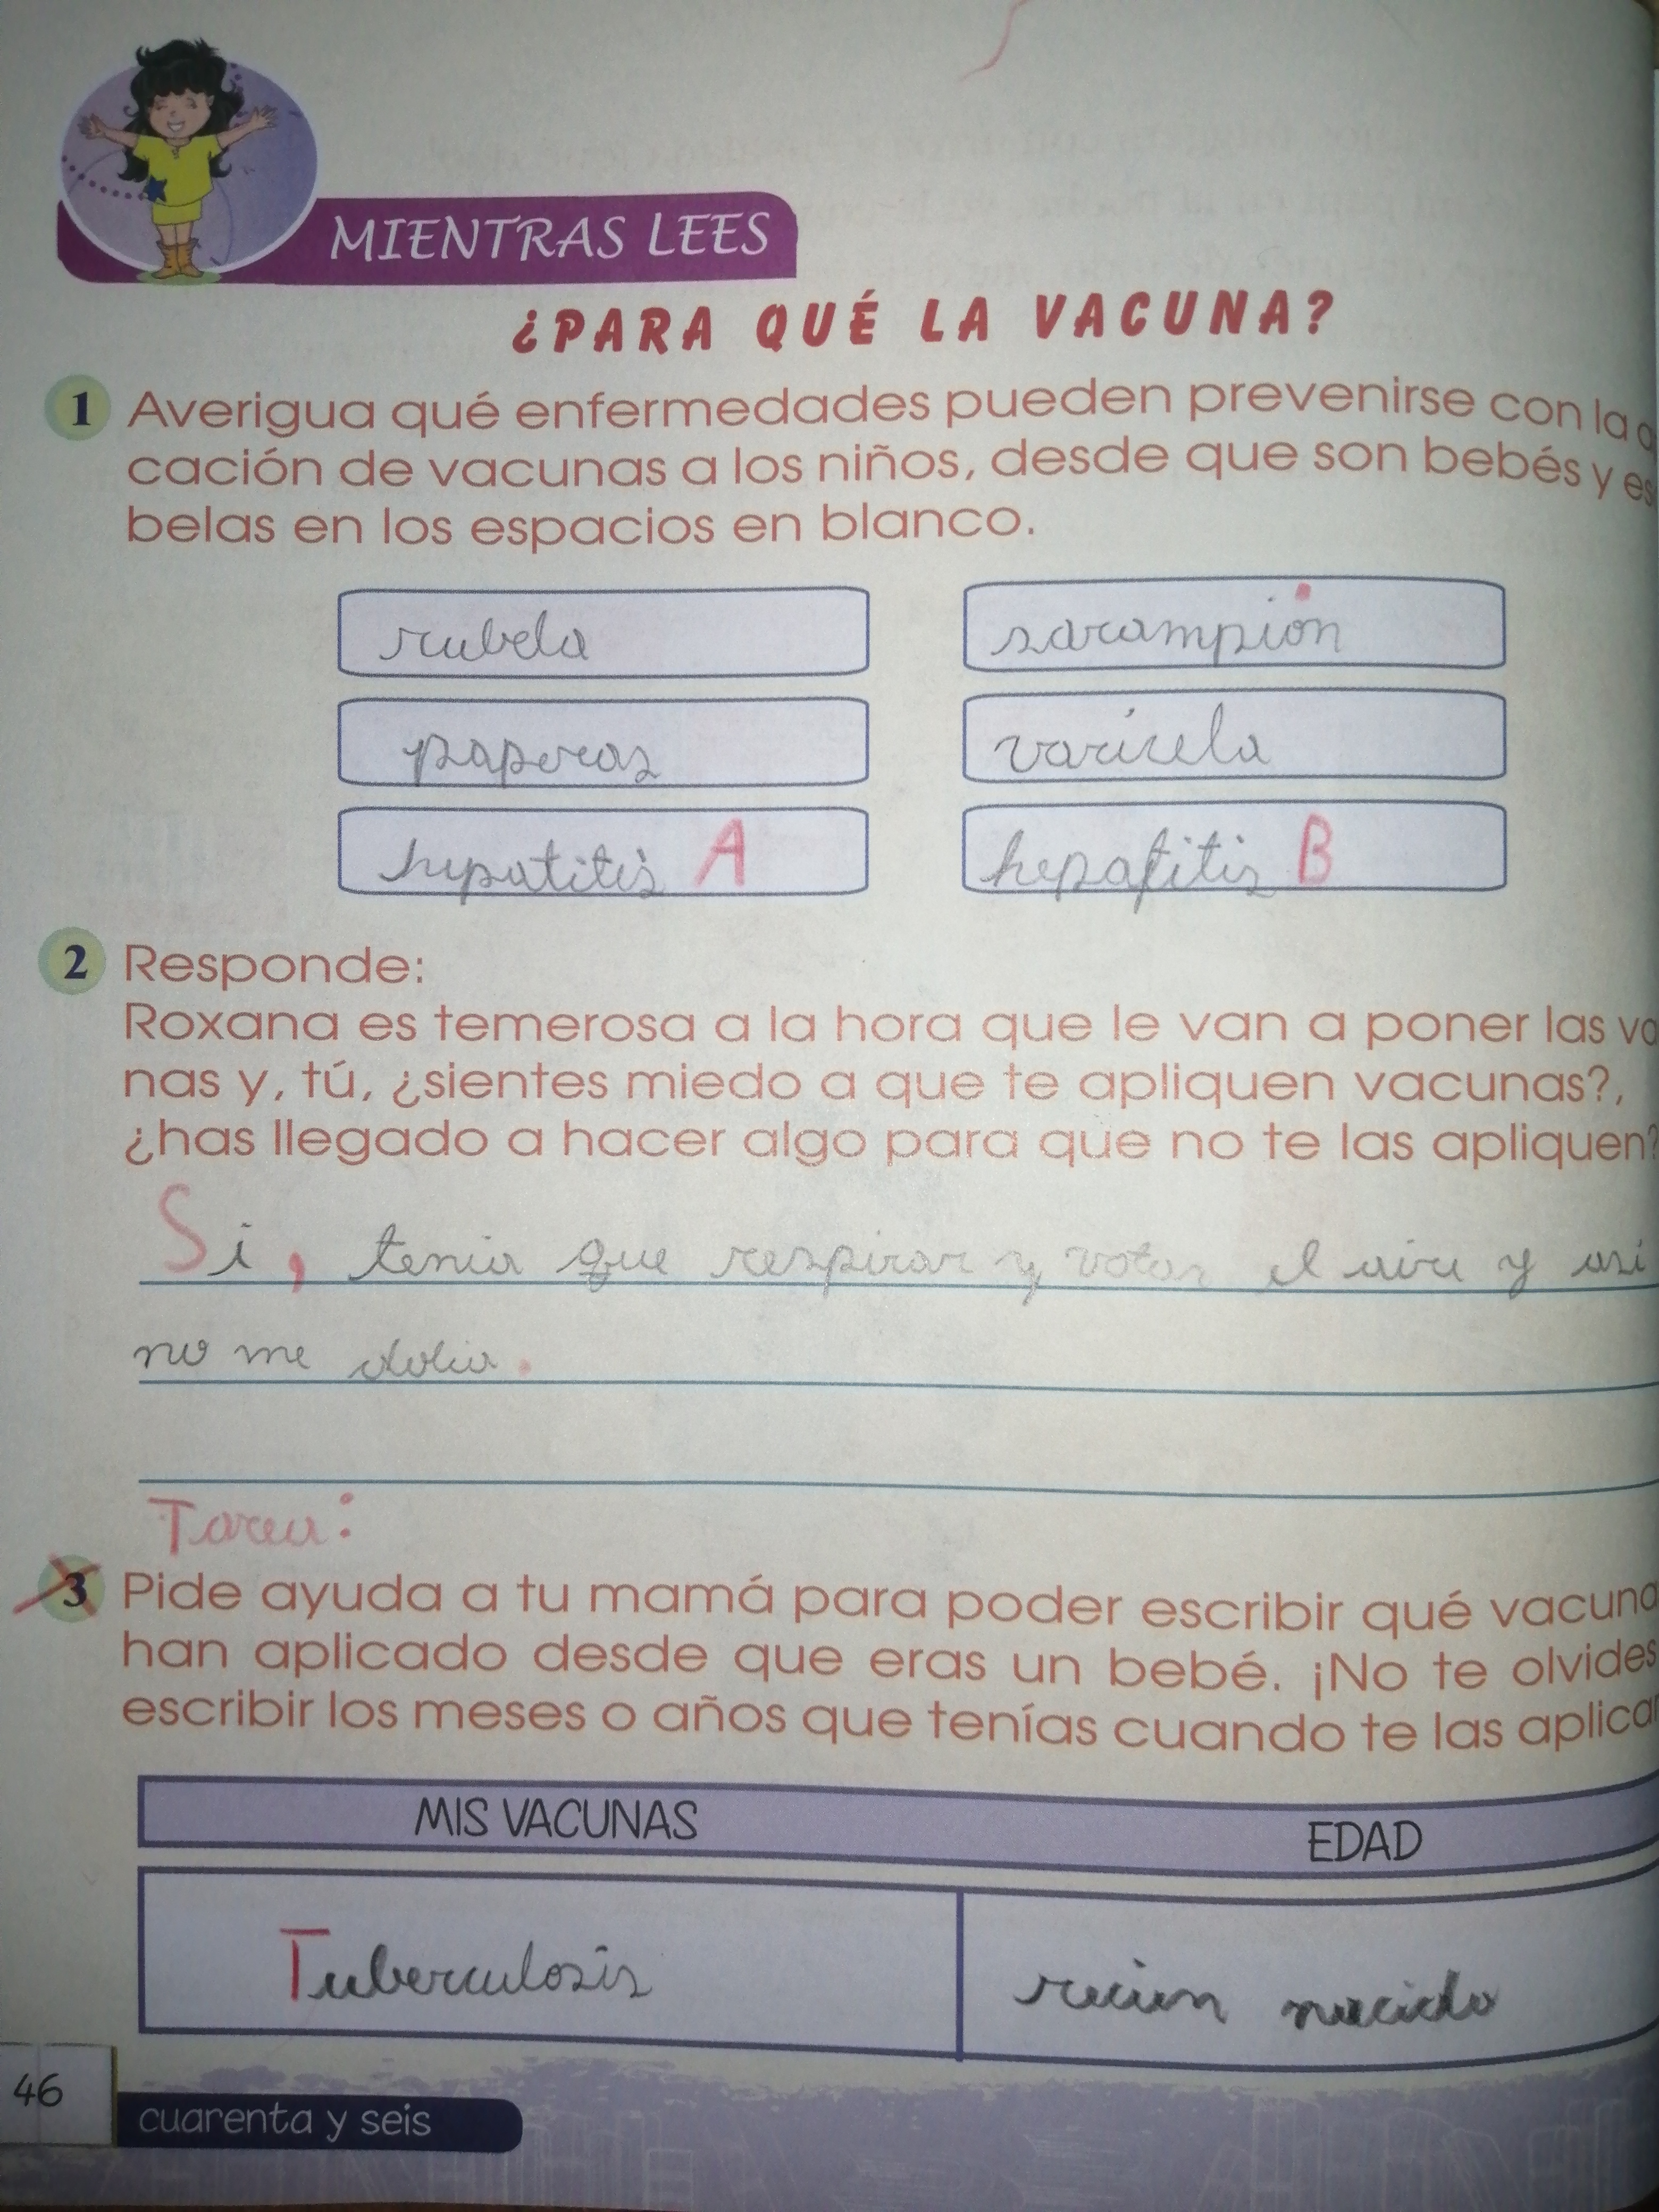 MIENTRAS LEES
¿PARA QUÉ LA VACUNA?
1 Averigua qué enfermedades pueden prevenirse con la a
cación de vacunas a los niños, desde que son bebés y es
belas en los espacios en blanco.
rubela sarampión
paperas varicela
hepatitis A hepatitis B
2 Responde:
Roxana es temerosa a la hora que le van a poner las va
nas y, tú, ¿sientes miedo a que te apliquen vacunas?,
¿has llegado a hacer algo para que no te las apliquen?
Si, tenia que respirar y votar el aire y asi
no me dolia.
Tarea:
3 Pide ayuda a tu mamá para poder escribir qué vacuna
han aplicado desde que eras un bebé. ¡No te olvides
escribir los meses o años que tenías cuando te las aplicar
MIS VACUNAS EDAD
Tuberculosis recien nacido
46 cuarenta y seis